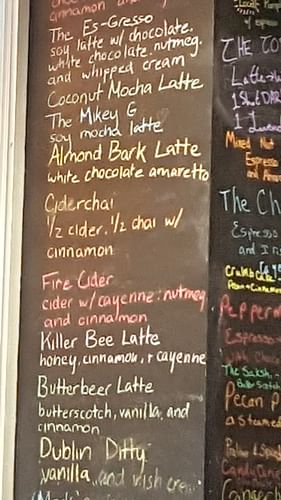 cinnamon
The Es-Gresso
soy latte w/ chocolate,
white chocolate, nutmeg,
and whipped cream
Coconut Mocha Latte
The Mikey G
soy mocha latte
Almond Bark Latte
white chocolate amaretto
Ciderchai
1/2 cider, 1/2 chai w/
cinnamon
Fire Cider
cider w/ cayenne, nutmeg,
and cinnamon
Killer Bee Latte
honey, cinnamon, + cayenne
Butterbeer Latte
butterscotch, vanilla, and
cinnamon
Dublin Ditty
vanilla and irish
THE
1 Shot
Mixed Nut
Espresso
The Ch
Espresso
and
Pepperm
Espresso
Pecan P
a steamed